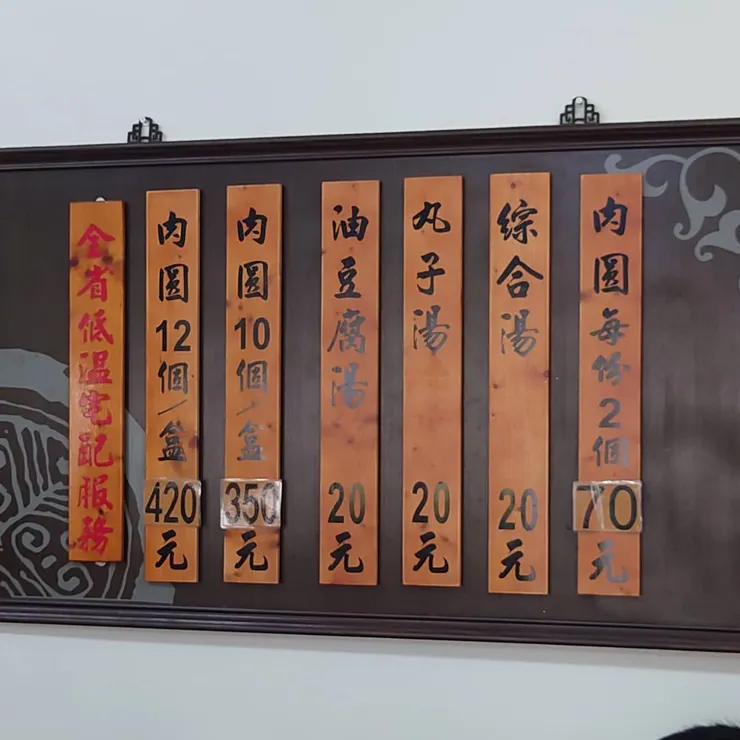 肉圓每份2個70元
綜合湯20元
丸子湯20元
油豆腐湯20元
肉圓10個/盒350元
肉圓12個/盒420元
全省低溫宅配服務